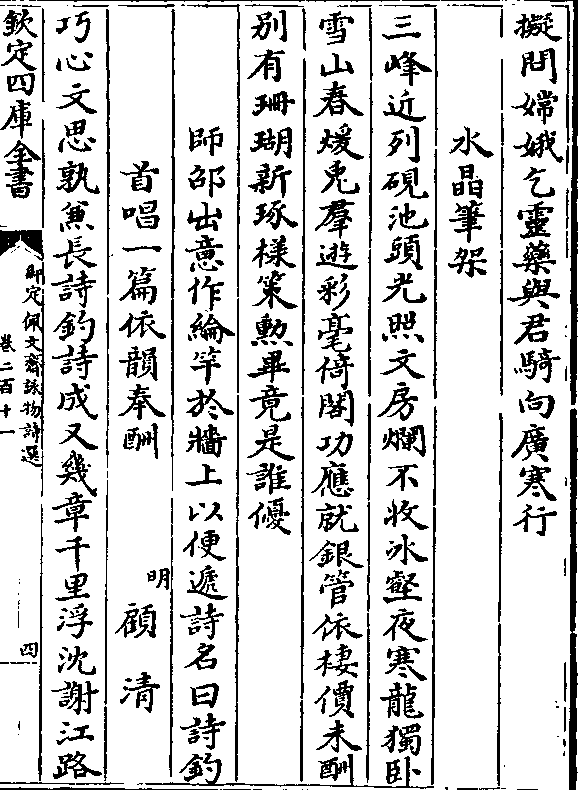 擬問嫦娥乞靈藥與君騎向廣寒行
水晶筆架
三峰近列硯池頭光照文房爛不收冰壑夜寒龍獨卧
雪山春煖兎羣遊彩毫倚閣功應就銀管依棲價未酬
别有珊瑚新琢様策勲畢竟是誰優
師邵出意作綸竿於牆上以便遞詩名曰詩釣
首唱一篇依韻奉酬
明 顧清
巧心文思孰兼長詩釣詩成又幾章千里浮沈謝江路
欽定四庫全書
御定佩文齋詠物詩選
卷二百十一
四